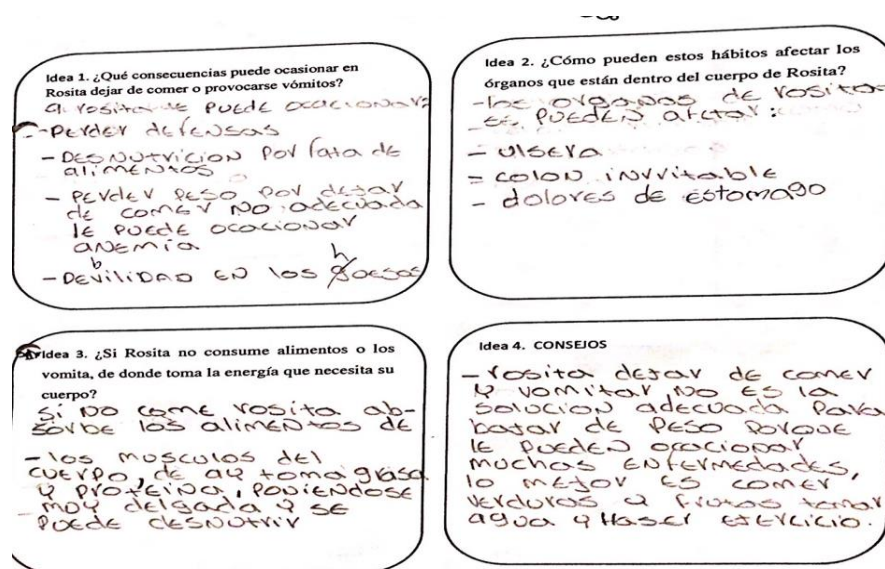 Idea 1. ¿Qué consecuencias puede ocasionar en
Rosita dejar de comer o provocarse vómitos?
a rosita le puede ocacionar:
-Perder defensas
- Desnutricion por fata de
alimentos
- perder peso por dejar
de comer no adecuada
le puede ocacionar
anemia
b h
- Devilidad en los goesos
Idea 2. ¿Cómo pueden estos hábitos afectar los
órganos que están dentro del cuerpo de Rosita?
-los organos de rosita
se pueden afectar:
- ulsera
- colon inrritable
- dolores de estomago
Idea 3. ¿Si Rosita no consume alimentos o los
vomita, de donde toma la energía que necesita su
cuerpo?
si no come rosita ab-
sorbe los alimentos de
- los musculos del
cuerpo, de ay toma grasa
y proteina, poniendose
muy delgada y se
puede desnutrir
Idea 4. CONSEJOS
- rosita dejar de comer
y vomitar no es la
solucion adecuada para
bajar de peso porque
le pueden ocacionar
muchas enfermedades,
lo mejor es comer
verduras y frutas tomar
agua y Haser ejercicio.